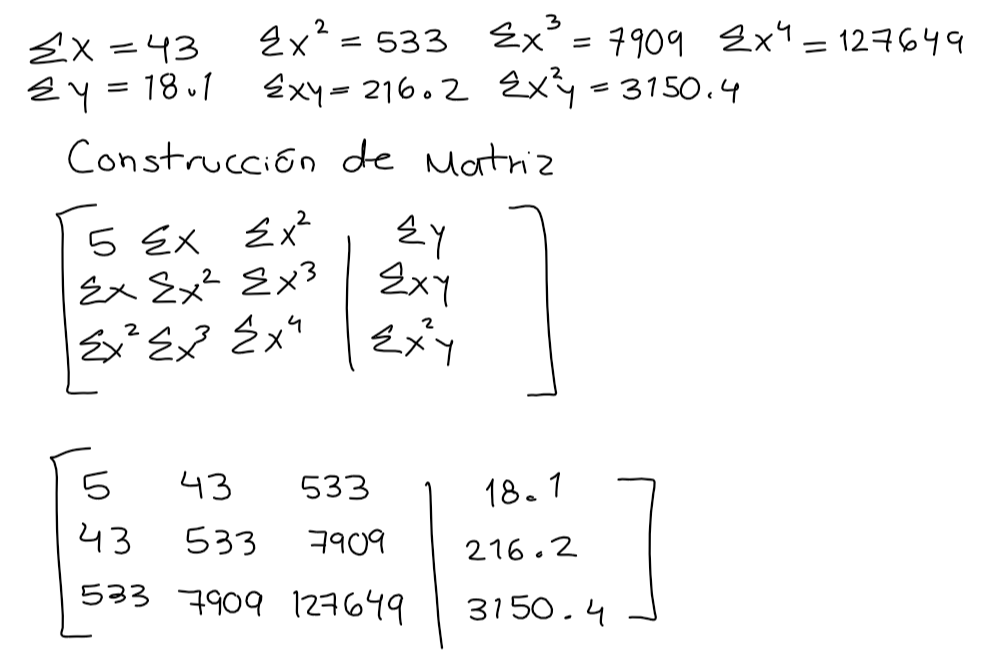 Σx = 43 Σx² = 533 Σx³ = 7909 Σx⁴ = 127649
Σy = 18.1 Σxy = 216.2 Σx²y = 3150.4
Construcción de Matriz
5 Σx Σx² | Σy
Σx Σx² Σx³ | Σxy
Σx² Σx³ Σx⁴ | Σx²y
5 43 533 | 18.1
43 533 7909 | 216.2
533 7909 127649 | 3150.4